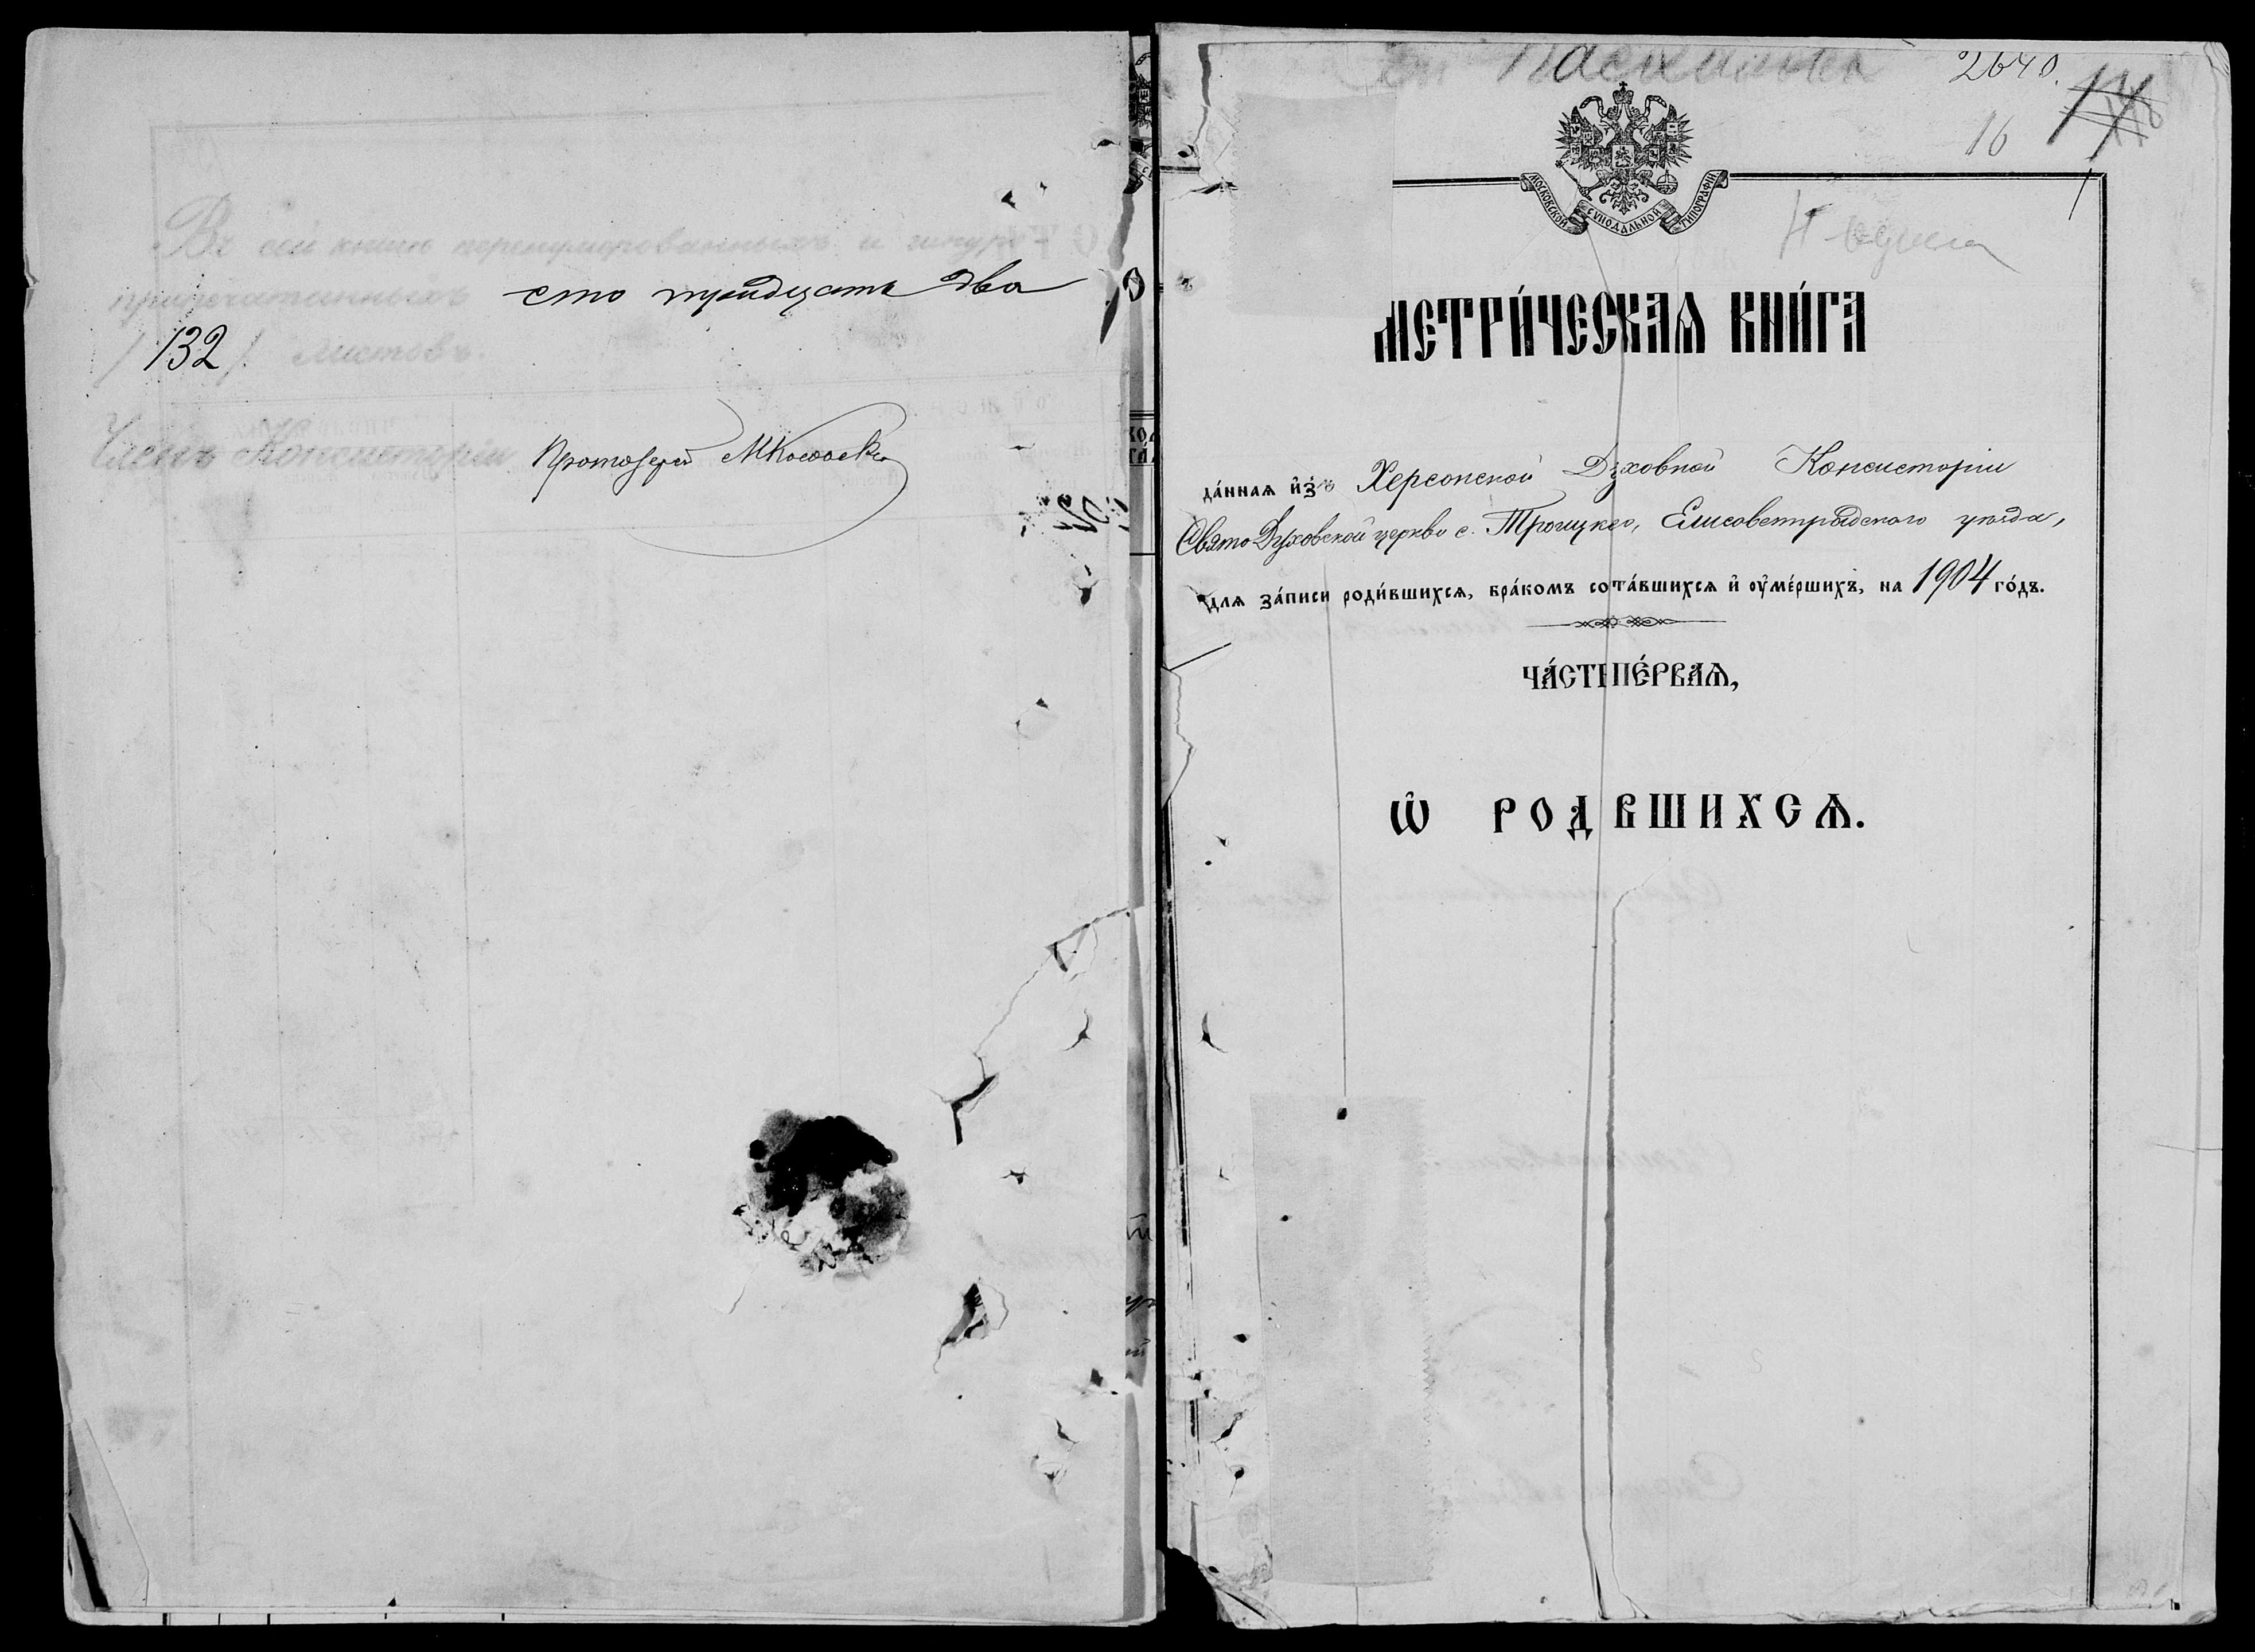 Въ сей книгѣ перенумерованныхъ и шнуро-
припечатанныхъ сто тридцать два
/132/ листовъ.
Членъ Консисторіи Протоіерей
2640.
16
МОСКОВСКОЙ СѴНОДАЛЬНОЙ ТИПОГРАФІИ
МЕТРИ́ЧЕСКАѦ КНИ́ГА
да́ннаѧ и҆зъ Херсонской Духовной Консисторіи
Свято Духовской церкви с. Троицкаго, Елисаветградскаго уѣзда,
для за́писи роди́вшихсѧ, бра́комъ сочета́вшихсѧ и҆ оу҆ме́ршихъ, на 1904 го́дъ.
ЧА́СТЬ ПЕ́РВАѦ,
Ѡ҆ РОДИВШИХСѦ.